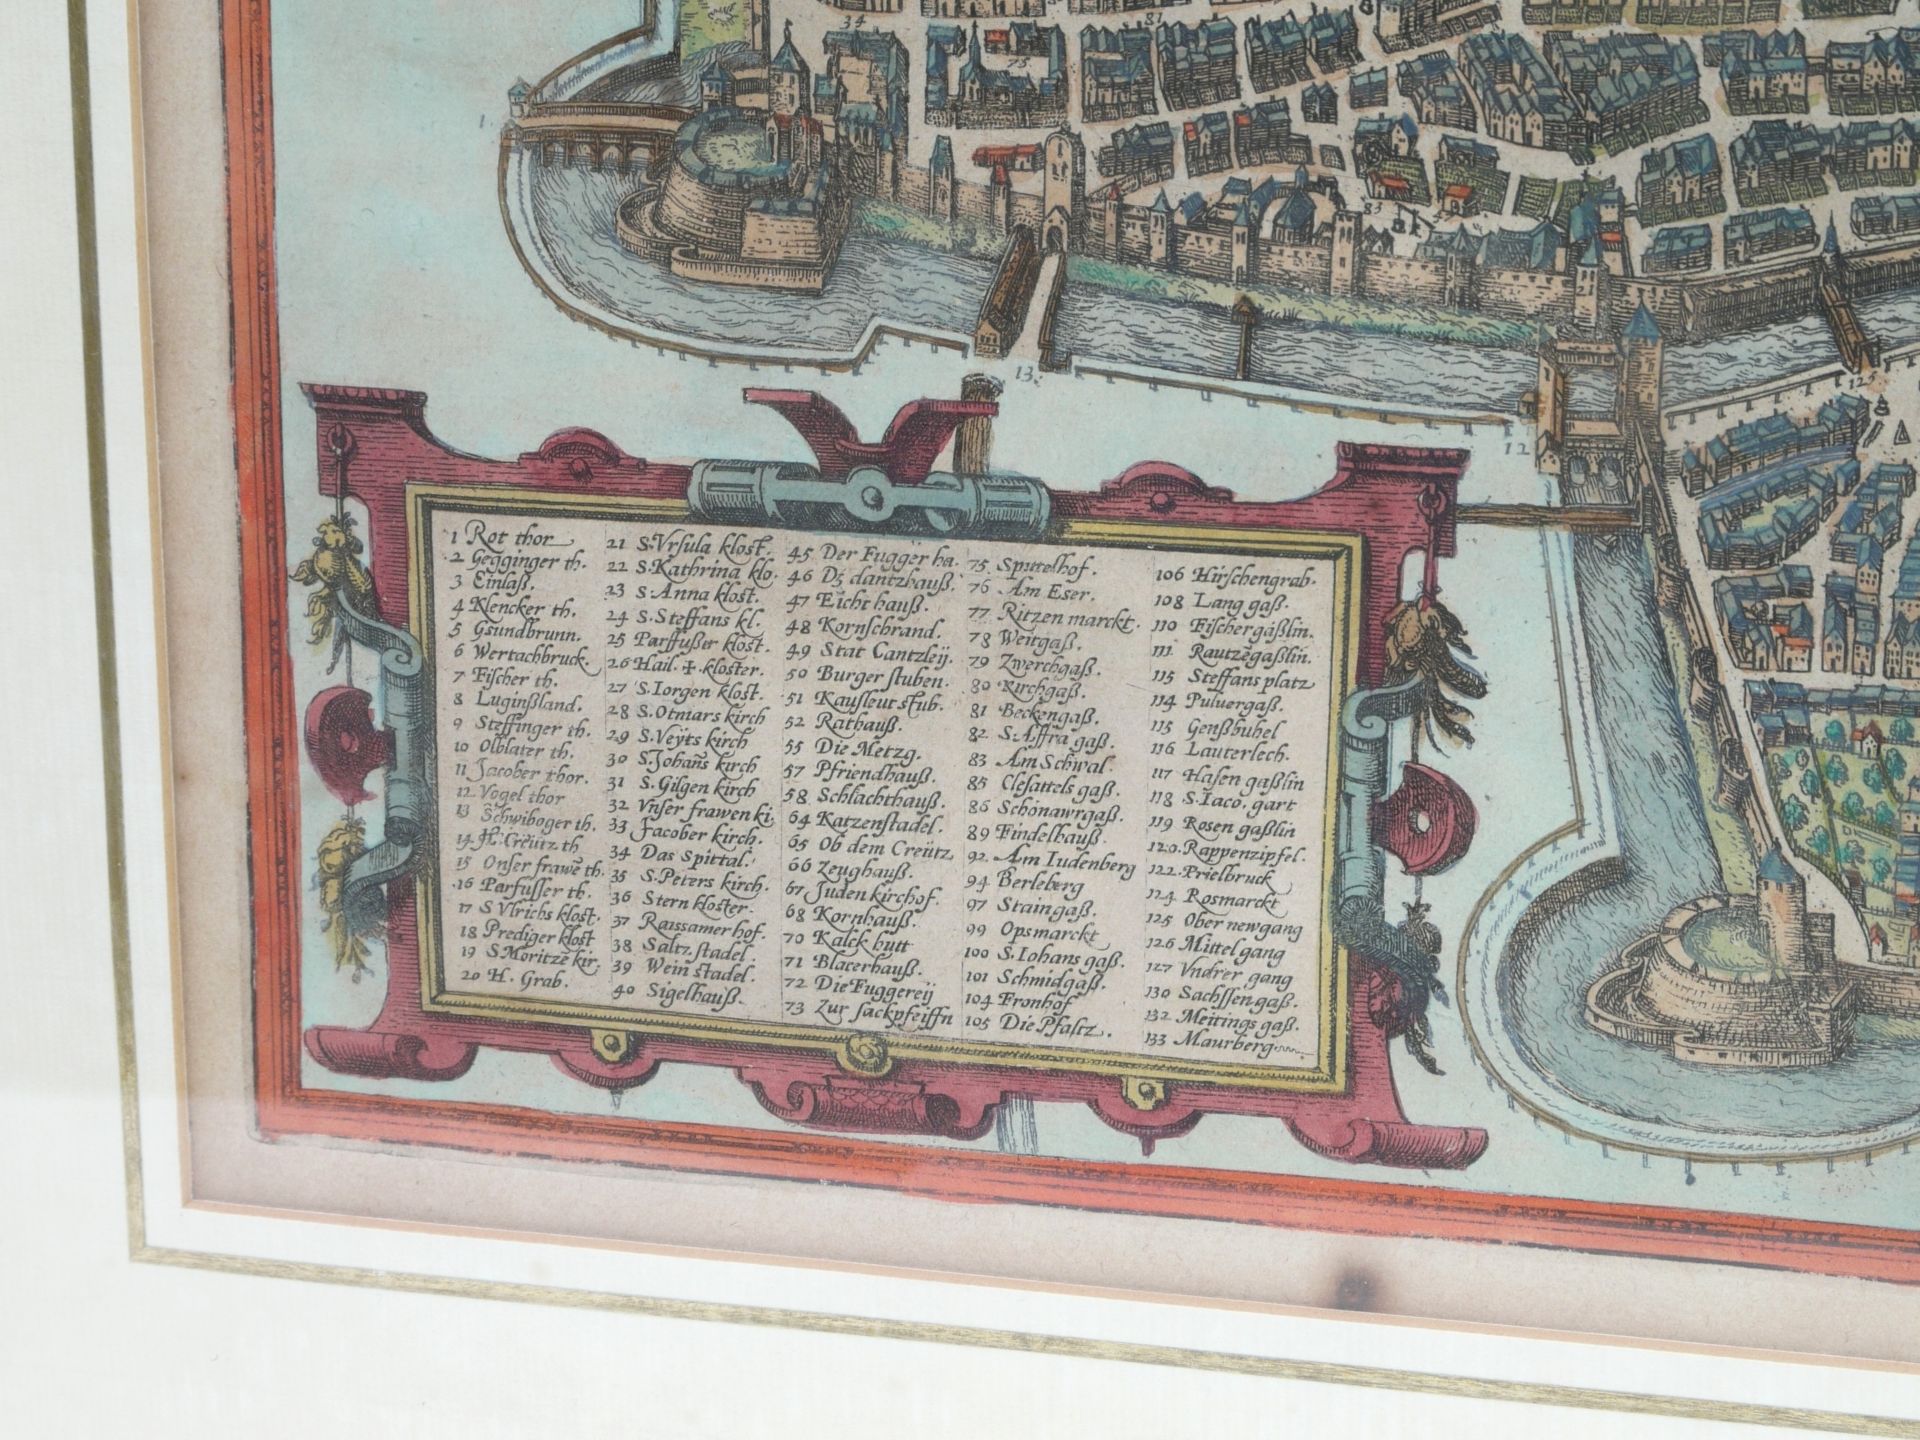 34
81
75
1.
83
49
13.
125
12
1 Rot thor
2 Gegginger th.
3 Einlaß.
4 Klencker th.
5 Gsundbrunn.
6 Wertachbruck.
7 Fischer th.
8 Luginßland.
9 Steffinger th.
10 Olblater th.
11 Jacober thor.
12 Vogel thor
13 Schwiboger th.
14 H. Creütz th
15 Onser frawē th.
16 Parfusser th.
17 S Vlrichs klost.
18 Prediger klost
19 S Moritzē kir.
20 H. Grab.
21 S. Vrsula klost.
22 S. Kathrina klo.
23 S. Anna klost.
24 S. Steffans kl.
25 Parffußer klost.
26 Hail. ✝. kloster.
27 S. Iorgen klost.
28 S. Otmars kirch
29 S. Veÿts kirch
30 S. Johañs kirch
31 S. Gilgen kirch
32 Vnser frawen ki
33 Jacober kirch.
34 Das Spittal.
35 S. Peters kirch.
36 Stern kloster.
37 Raissamer hof.
38 Saltz stadel.
39 Wein stadel.
40 Sigelhauß.
45 Der Fugger ha.
46 Dz dantzhauß.
47 Eicht hauß.
48 Kornschrand.
49 Stat Cantzleÿ.
50 Burger stuben.
51 Kaufleut stub.
52 Rathauß.
55 Die Metzg.
57 Pfriendhauß.
58 Schlachthauß.
64 Katzenstadel.
65 Ob dem Creütz
66 Zeughauß.
67 Juden kirchof.
68 Kornhauß.
70 Kalck hutt
71 Blaterhauß.
72 Die Fuggereÿ
73 Zur sackpfeiffn
75. Spitelhof.
76 Am Eser.
77 Ritzen marckt.
78 Weitgaß.
79 Zwerchgaß.
80 Kirchgaß.
81 Beckengaß.
82 S. Affra gaß.
83 Am Schwal.
85 Clesattels gaß.
86 Schönawrgaß.
89 Findelhauß.
92. Am Iudenberg
94 Berleberg
97 Staingaß.
99 Opsmarckt
100 S. Iohans gaß.
101 Schmidgaß.
104 Fronhof
105 Die Pfaltz.
106 Hirschengrab.
108 Lang gaß.
110 Fischergäßlin.
111 Rautzēgaßlin.
115 Steffans platz
114 Puluergaß.
115 Genßbuhel
116 Lauterlech.
117 Hasen gaßlin
118 S. Iaco. gart
119 Rosen gaßlin
120. Rappenzipfel.
122. Prielbruck
124 Rosmarckt
125 Ober newgang
126 Mittel gang
127 Vndrer gang
130 Sachssen gaß.
132. Meitings gaß.
133 Maurberg